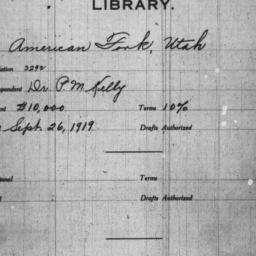 LIBRARY.
American Fork, Utah
lation 3292
spondent Dr P M Kelly
nt $10,000 Terms 10%
Sept. 26, 1919 Drafts Authorized
ional Terms
Drafts Authorized